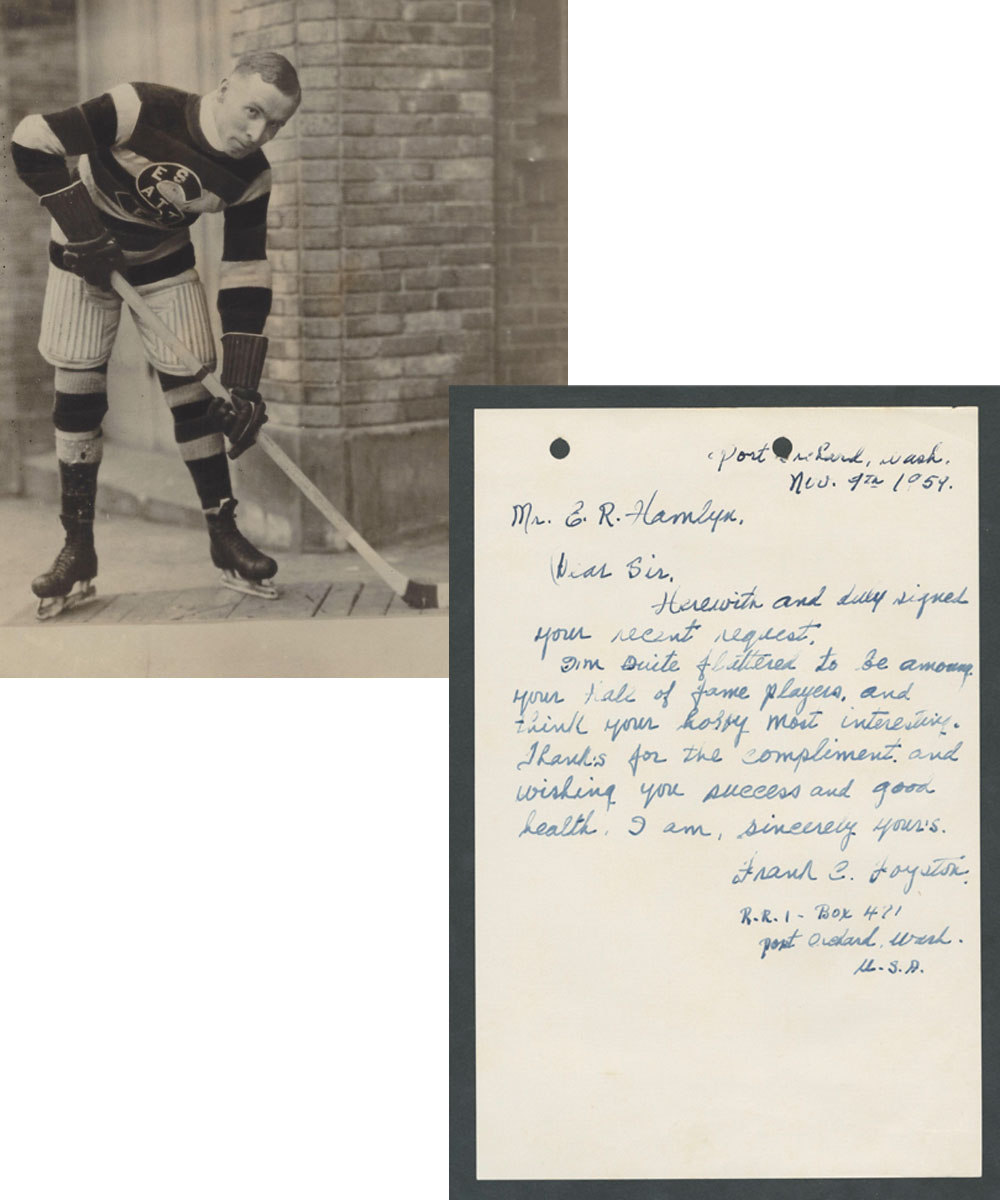 SEATTLE
Port Orchard, Wash.
Nov. 9th 1959.
Mr. E. R. Hamlyn.
Dear Sir,
Herewith and duly signed
your recent request.
I'm Quite flattered to be among
your Hall of fame players, and
think your hobby most interesting.
Thanks for the compliment. and
wishing you success and good
health. I am, sincerely your's.
Frank C. Foyston.
R.R. 1 - Box 471
port Orchard, Wash.
U.S.A.